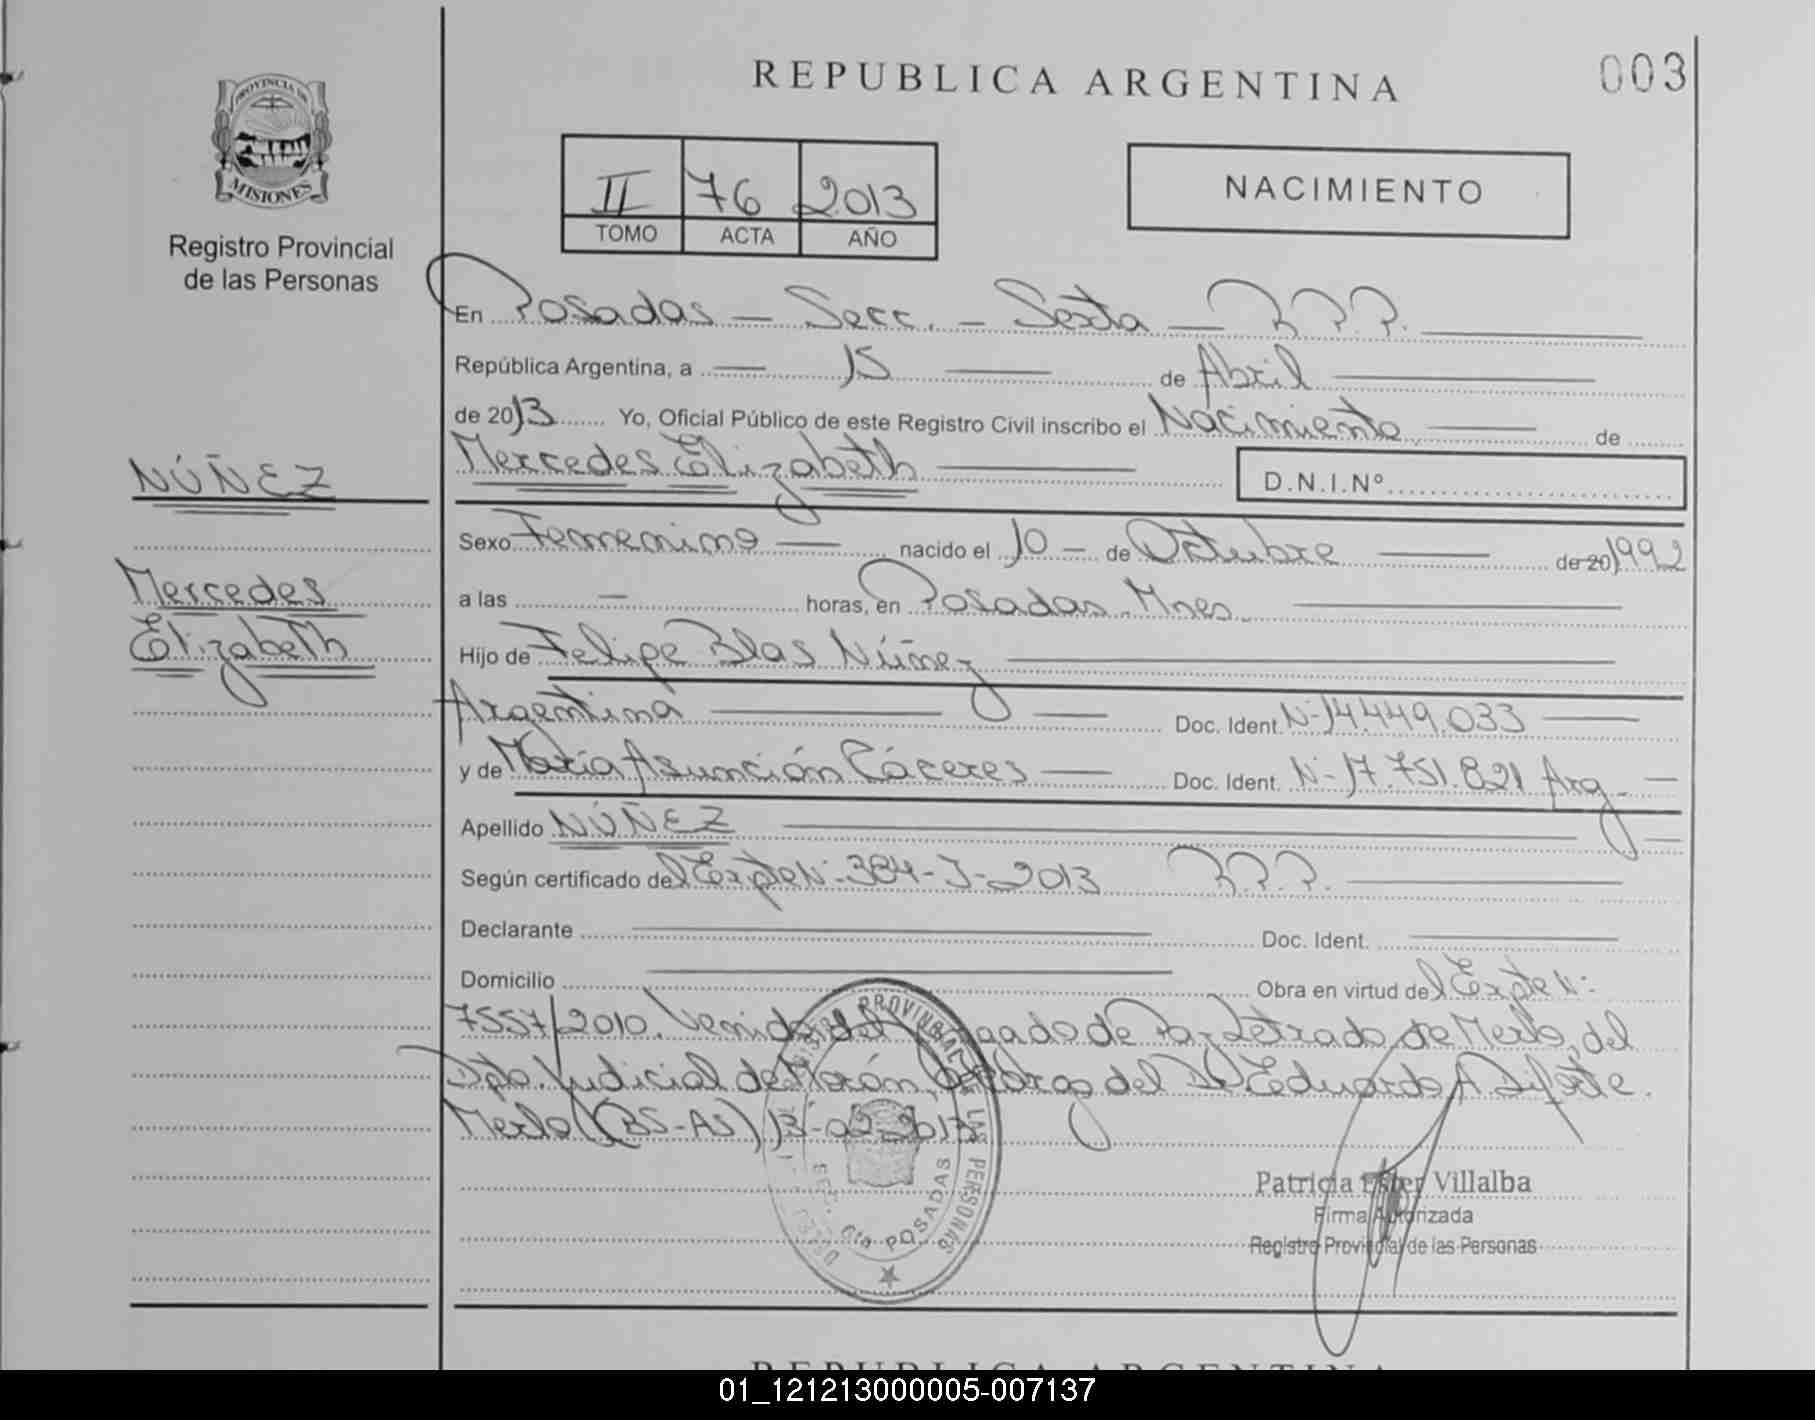 REPUBLICA ARGENTINA
003
PROVINCIA DE
MISIONES
Registro Provincial
de las Personas
II 76 2013
TOMO ACTA AÑO
NACIMIENTO
En Posadas — Secc. — Sexta — R.P.P.
República Argentina, a — 15 — de Abril
de 2013 Yo, Oficial Público de este Registro Civil inscribo el Nacimiento — de
Mercedes Elizabeth — D.N.I.Nº
NÚÑEZ
Mercedes
Elizabeth
Sexo Femenino — nacido el 10 — de Octubre — de 20 1992
a las — horas, en Posadas Mnes.
Hijo de Felipe Blas Núñez
Argentina — Doc. Ident. Nº 14.449.033
y de María Asunción Cáceres — Doc. Ident. Nº 17.751.821 Arg.
Apellido NÚÑEZ
Según certificado del Expte Nº 384-J-2013 R.P.P.
Declarante — Doc. Ident.
Domicilio — Obra en virtud del Expte Nº:
7557/2010. Venido del Juzgado de Paz Letrado de Merlo, del
Dpto. Judicial de Morón, a cargo del Dr Eduardo A.
Merlo (BS-AS) 13-02-2013
REGISTRO PROVINCIAL DE LAS PERSONAS
SEC. 6ta POSADAS
Patricia Ester Villalba
Firma Autorizada
Registro Provincial de las Personas
REPUBLICA ARGENTINA
01_121213000005-007137